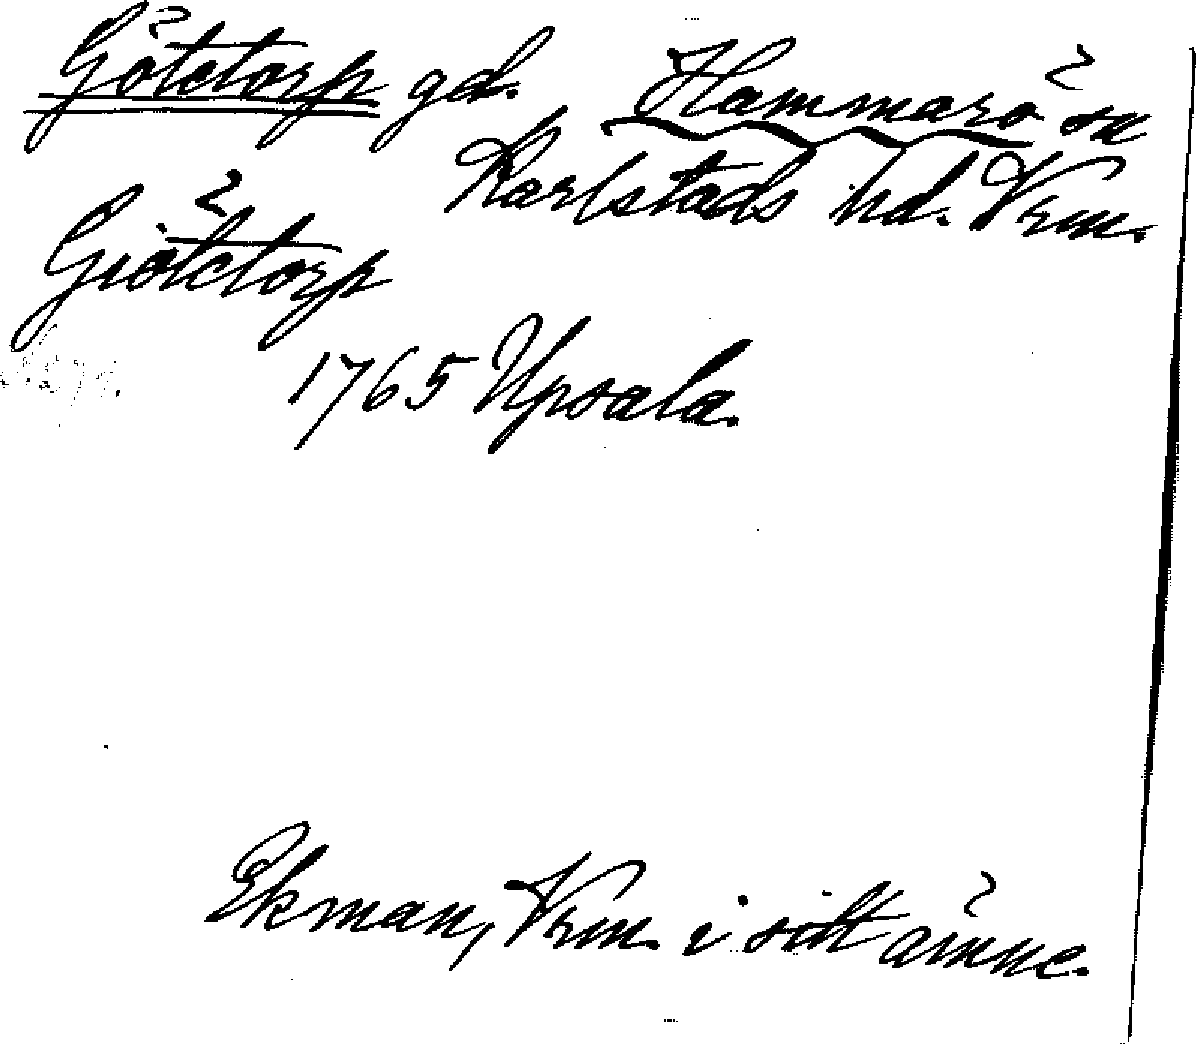 Götetorp gd. Hammarö sn
Karlstads hd. Vrm.
Giötetorp
1765 Upsala.
Ekman, Vrm. i sitt ämne.